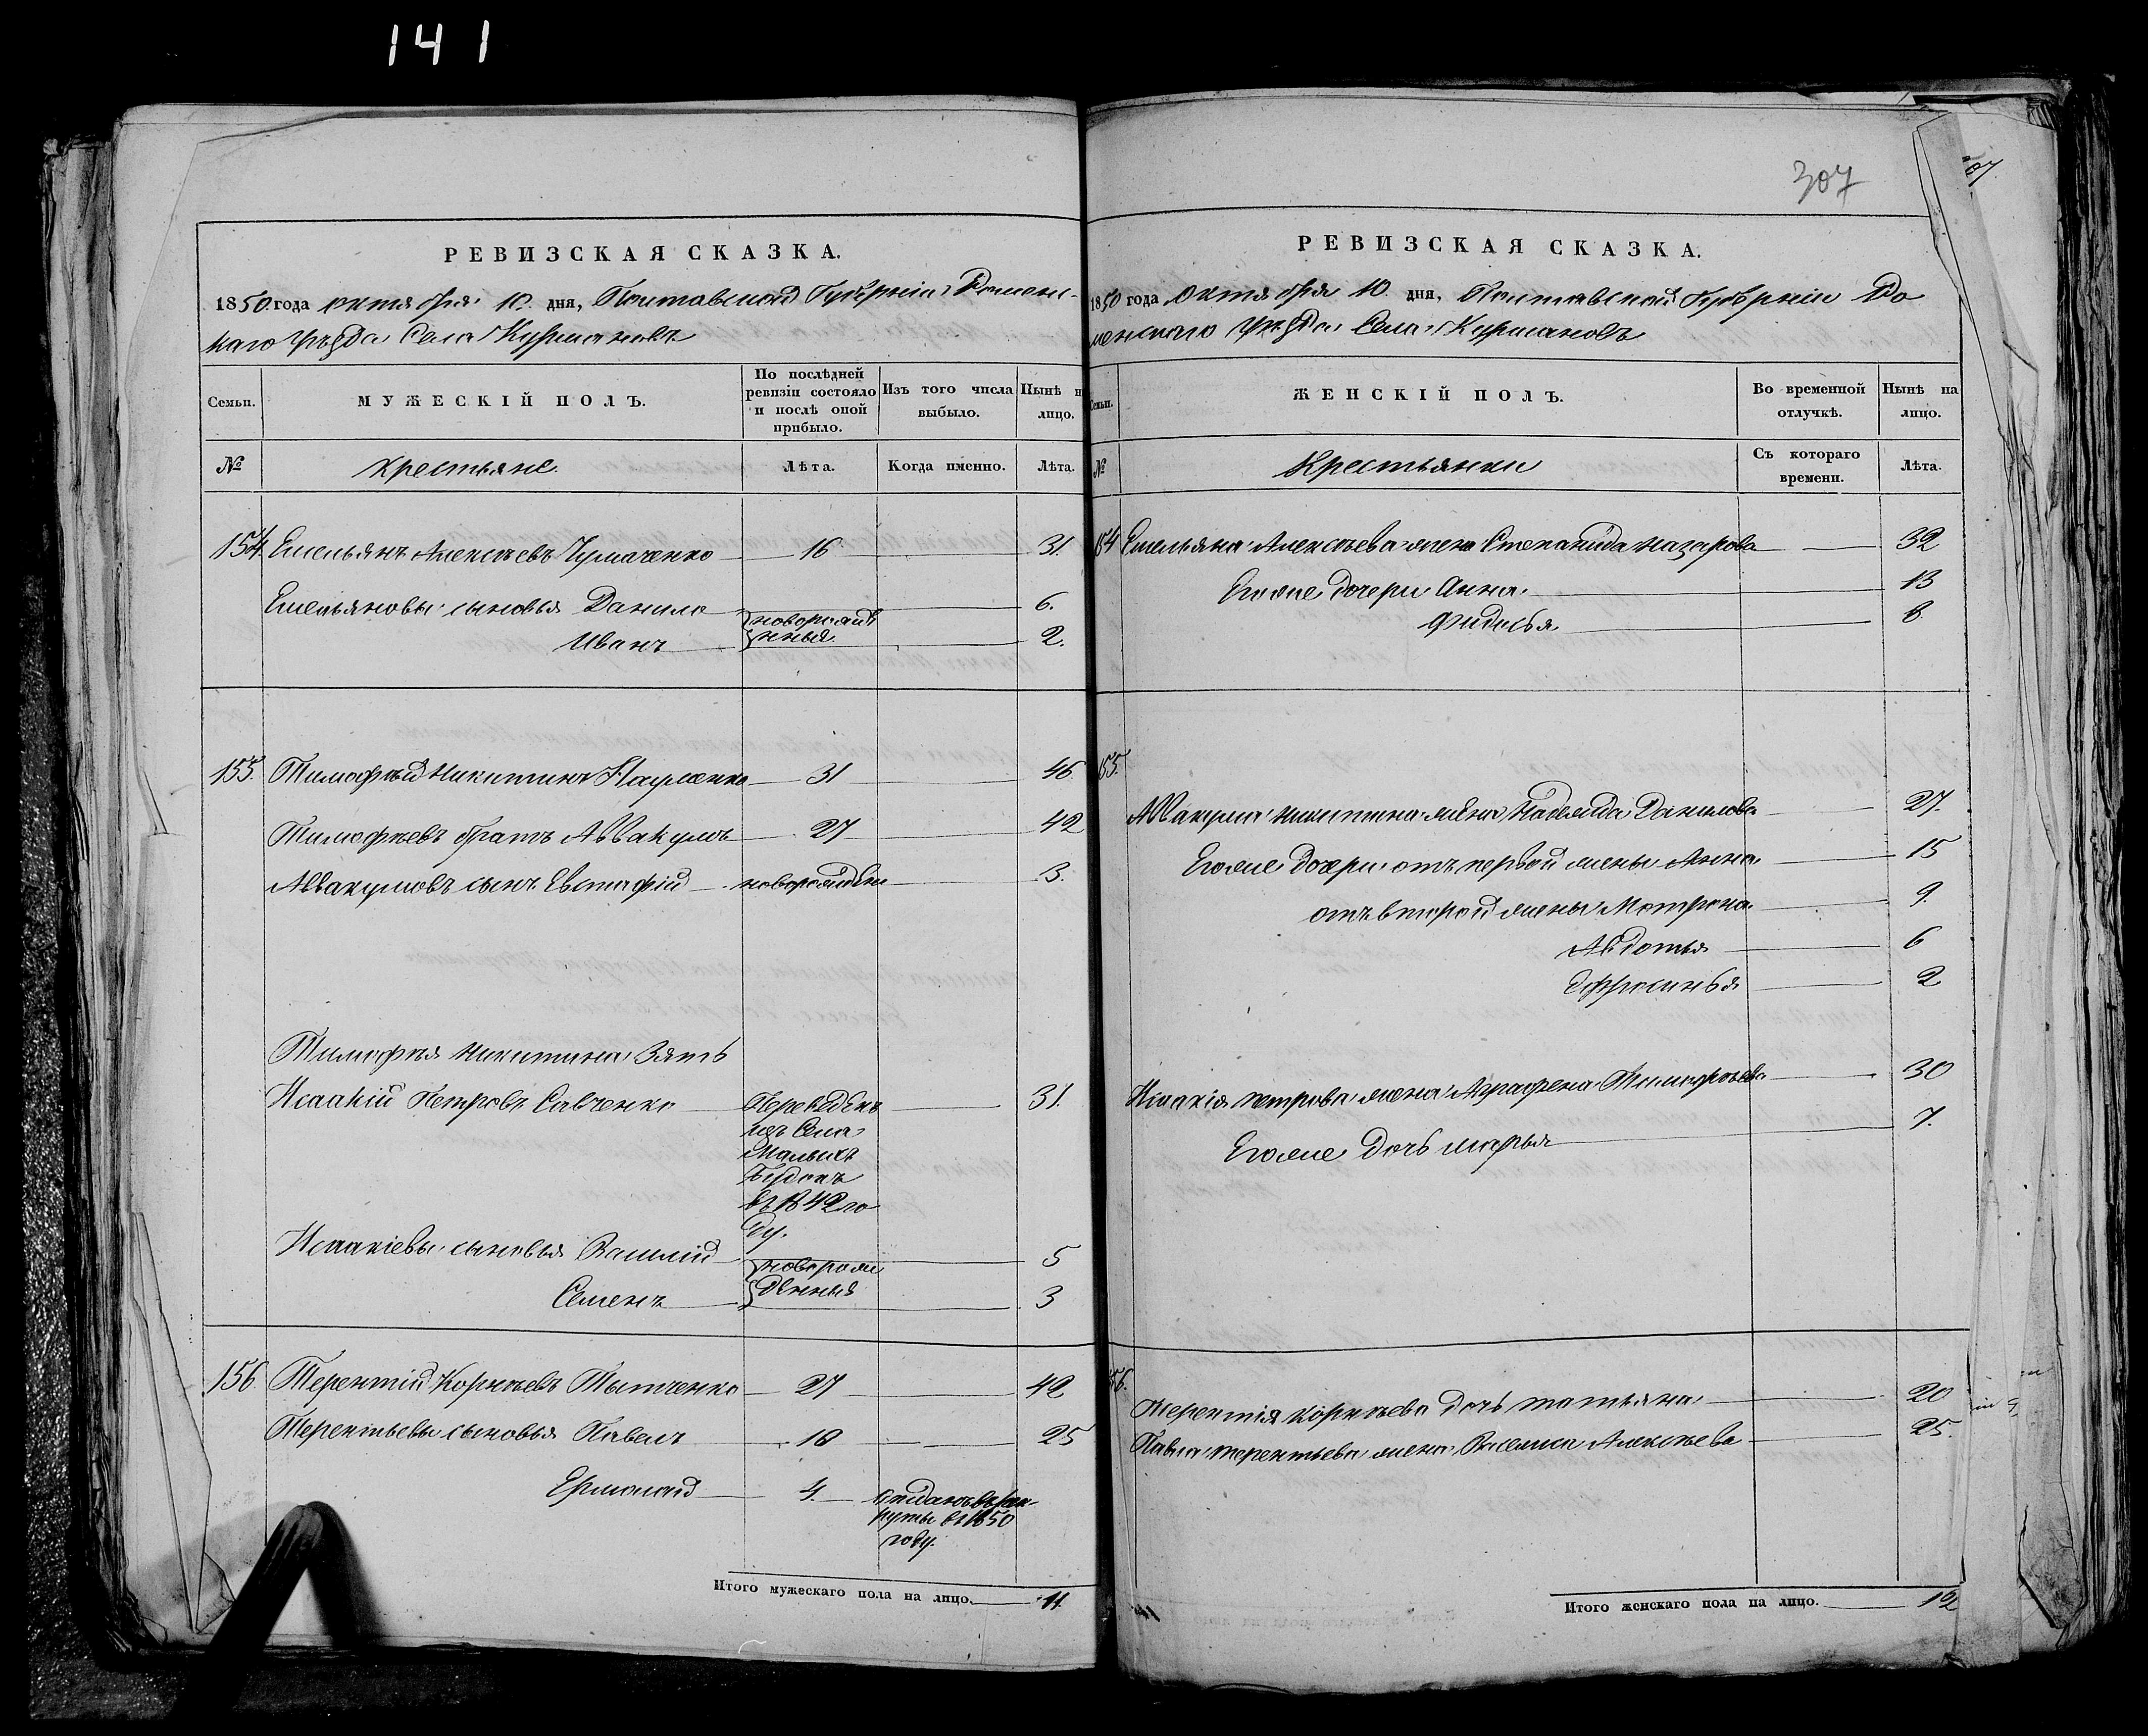 141
307
РЕВИЗСКАЯ СКАЗКА.
1850 года октября 10. дня, Полтавской Губерніи Ромен-
скаго уѣзда Села Курмановъ
Семьи. МУЖЕСКІЙ ПОЛЪ. По послѣдней ревизіи состояло и послѣ оной прибыло. Изъ того числа выбыло. Нынѣ н лицо.
№ Крестьяне. Лѣта. Когда именно. Лѣта.
154 Емельянъ Алексѣевъ Чумаченко 16 31.
Емельяновы сыновья Данило 6.
новорожд
Иванъ енныя 2.
155. Тимофѣй Никитинъ Науменко 31 46
Тимофѣевъ братъ Аввакумъ 27 42
Аввакумовъ сынъ Евстафій новорожден 3.
Тимофѣя Никитина Зять
Исаакій Петровъ Савченко Переведенъ 31.
изъ Села
Малыхъ
Будокъ
въ 1842 го
ду.
Исаакіевы сыновья Василій 5
новорож
Семенъ денныя 3
156 Терентій Корнѣевъ Тытченко 27 42
Терентьевы сыновья Павелъ 10 25
Ермолай 4. отданъ въ рек-
руты въ 1850
году.
Итого мужескаго пола на лицо. 11.
РЕВИЗСКАЯ СКАЗКА.
1850 года Октября 10. дня, Полтавской Губерніи Ро
менскаго уѣзда Села Курмановъ
Семьи. ЖЕНСКІЙ ПОЛЪ. Во временной отлучкѣ. Нынѣ на лицо.
№ Крестьянки Съ котораго времени. Лѣта.
154 Емельяна Алексѣева жена Степанида Назарова 32
Егоже дочери Анна 13
Фидосья 8
155. Аввакума Никитина жена Надежда Данилова 27.
Егоже дочери отъ первой жены Анна 15
отъ второй жены Мотрона 9.
Авдотья 6
Ефросинья 2
Исаакія Петрова жена Аграфена Тимофѣева 30
Егоже дочь Марья 7.
156. Терентія Корнѣева дочь Татьяна 20
Павла Терентьева жена Василиса Алексѣева 25.
Итого женскаго пола на лицо. 12